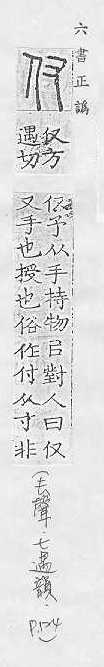 六書正譌
仅
仅方
遇切
仅予从手持物㠯對人曰仅
又手也授也俗作付从寸非
(去聲·七遇韻·